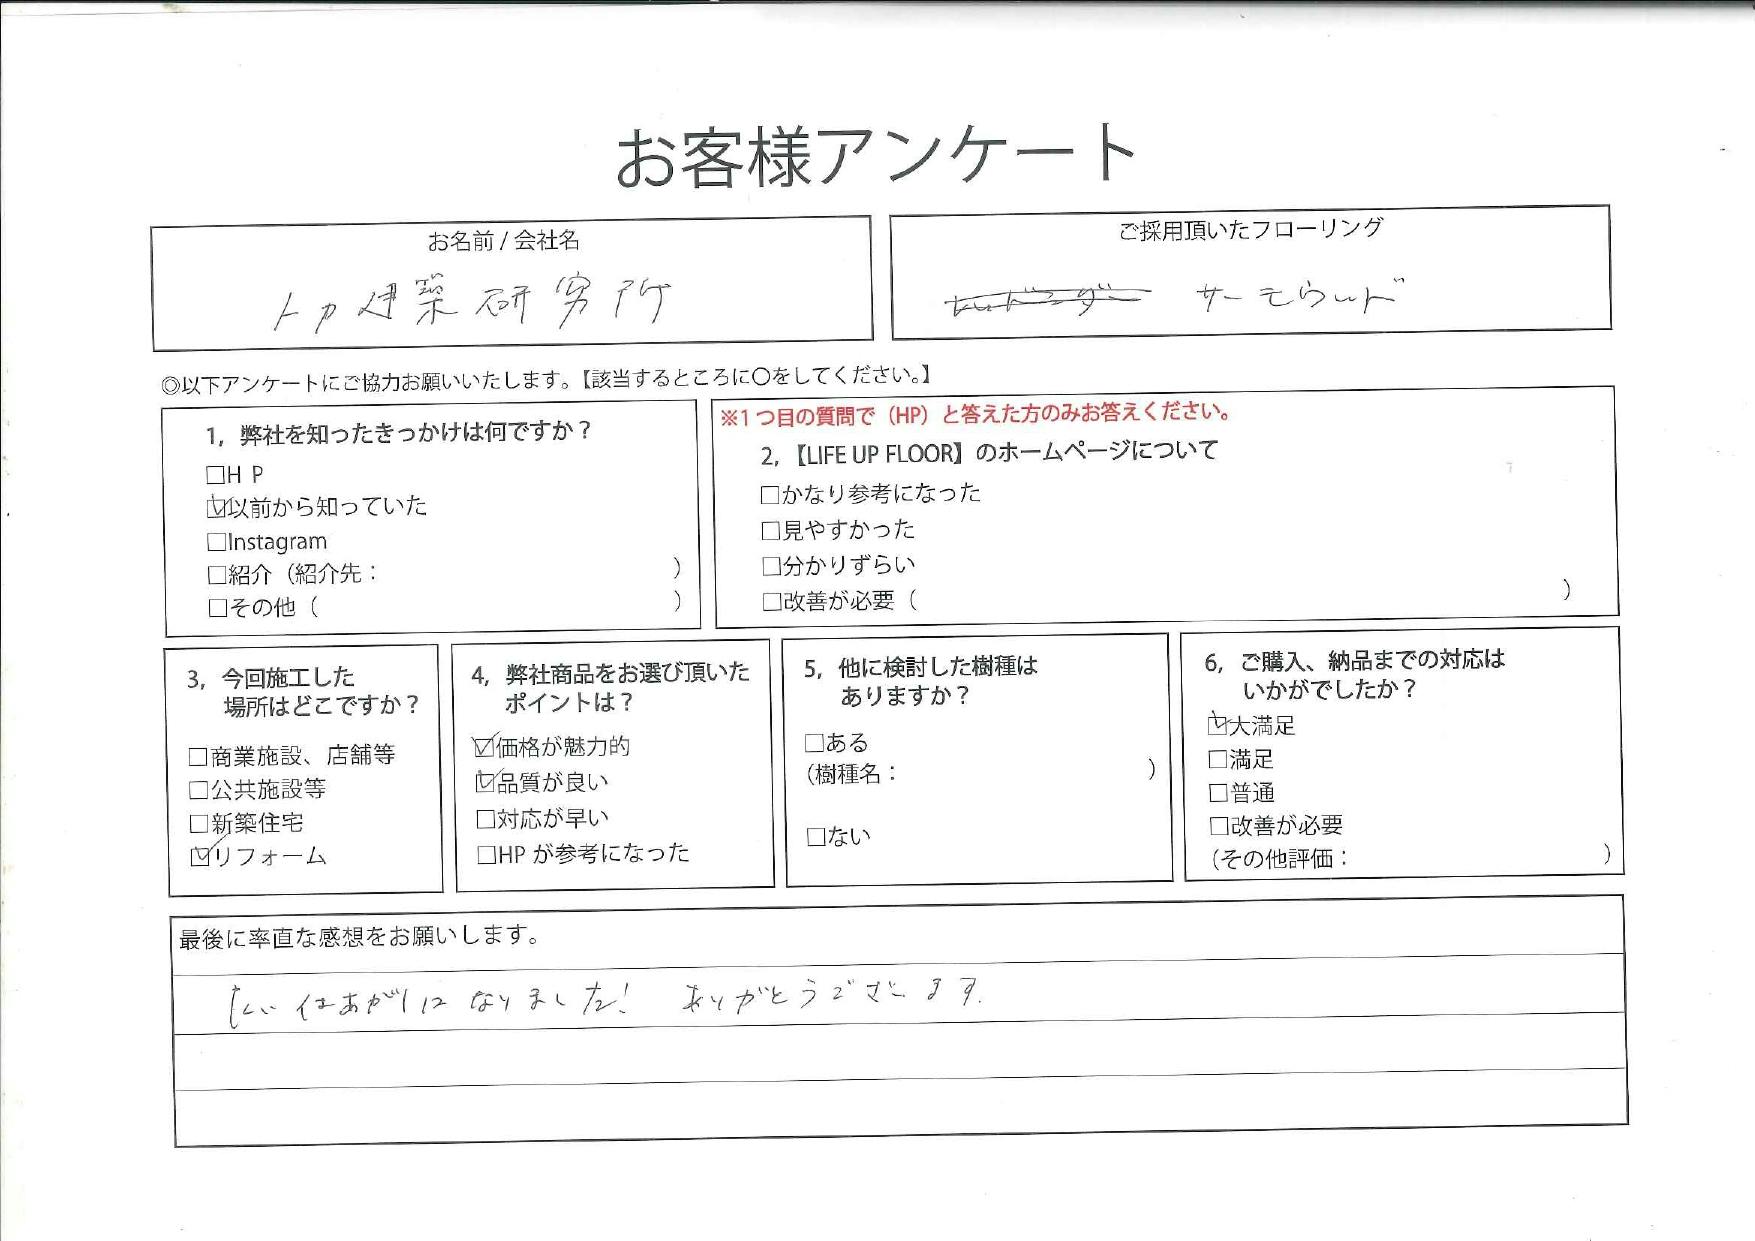 お客様アンケート
お名前 / 会社名
トカ建築研究所
ご採用頂いたフローリング
サーモウッド
◎以下アンケートにご協力お願いいたします。【該当するところに〇をしてください。】
1, 弊社を知ったきっかけは何ですか？
□H P
☑以前から知っていた
□Instagram
□紹介（紹介先： ）
□その他（ ）
※1 つ目の質問で（HP）と答えた方のみお答えください。
2,【LIFE UP FLOOR】のホームページについて
□かなり参考になった
□見やすかった
□分かりずらい
□改善が必要（ ）
3, 今回施工した
場所はどこですか？
□商業施設、店舗等
□公共施設等
□新築住宅
☑リフォーム
4, 弊社商品をお選び頂いた
ポイントは？
☑価格が魅力的
☑品質が良い
□対応が早い
□HP が参考になった
5, 他に検討した樹種は
ありますか？
□ある
（樹種名： ）
□ない
6, ご購入、納品までの対応は
いかがでしたか？
☑大満足
□満足
□普通
□改善が必要
（その他評価： ）
最後に率直な感想をお願いします。
仕あがりになりました！ ありがとうございます.